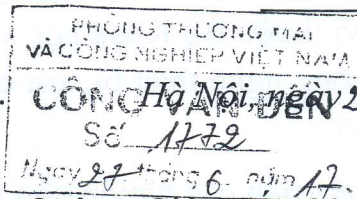 PHÒNG THƯƠNG MẠI
VÀ CÔNG NGHIỆP VIỆT NAM
CÔNG VĂN ĐẾN
Hà Nội, ngày 2
Số 1772
Ngày 27 tháng 6 năm 17.